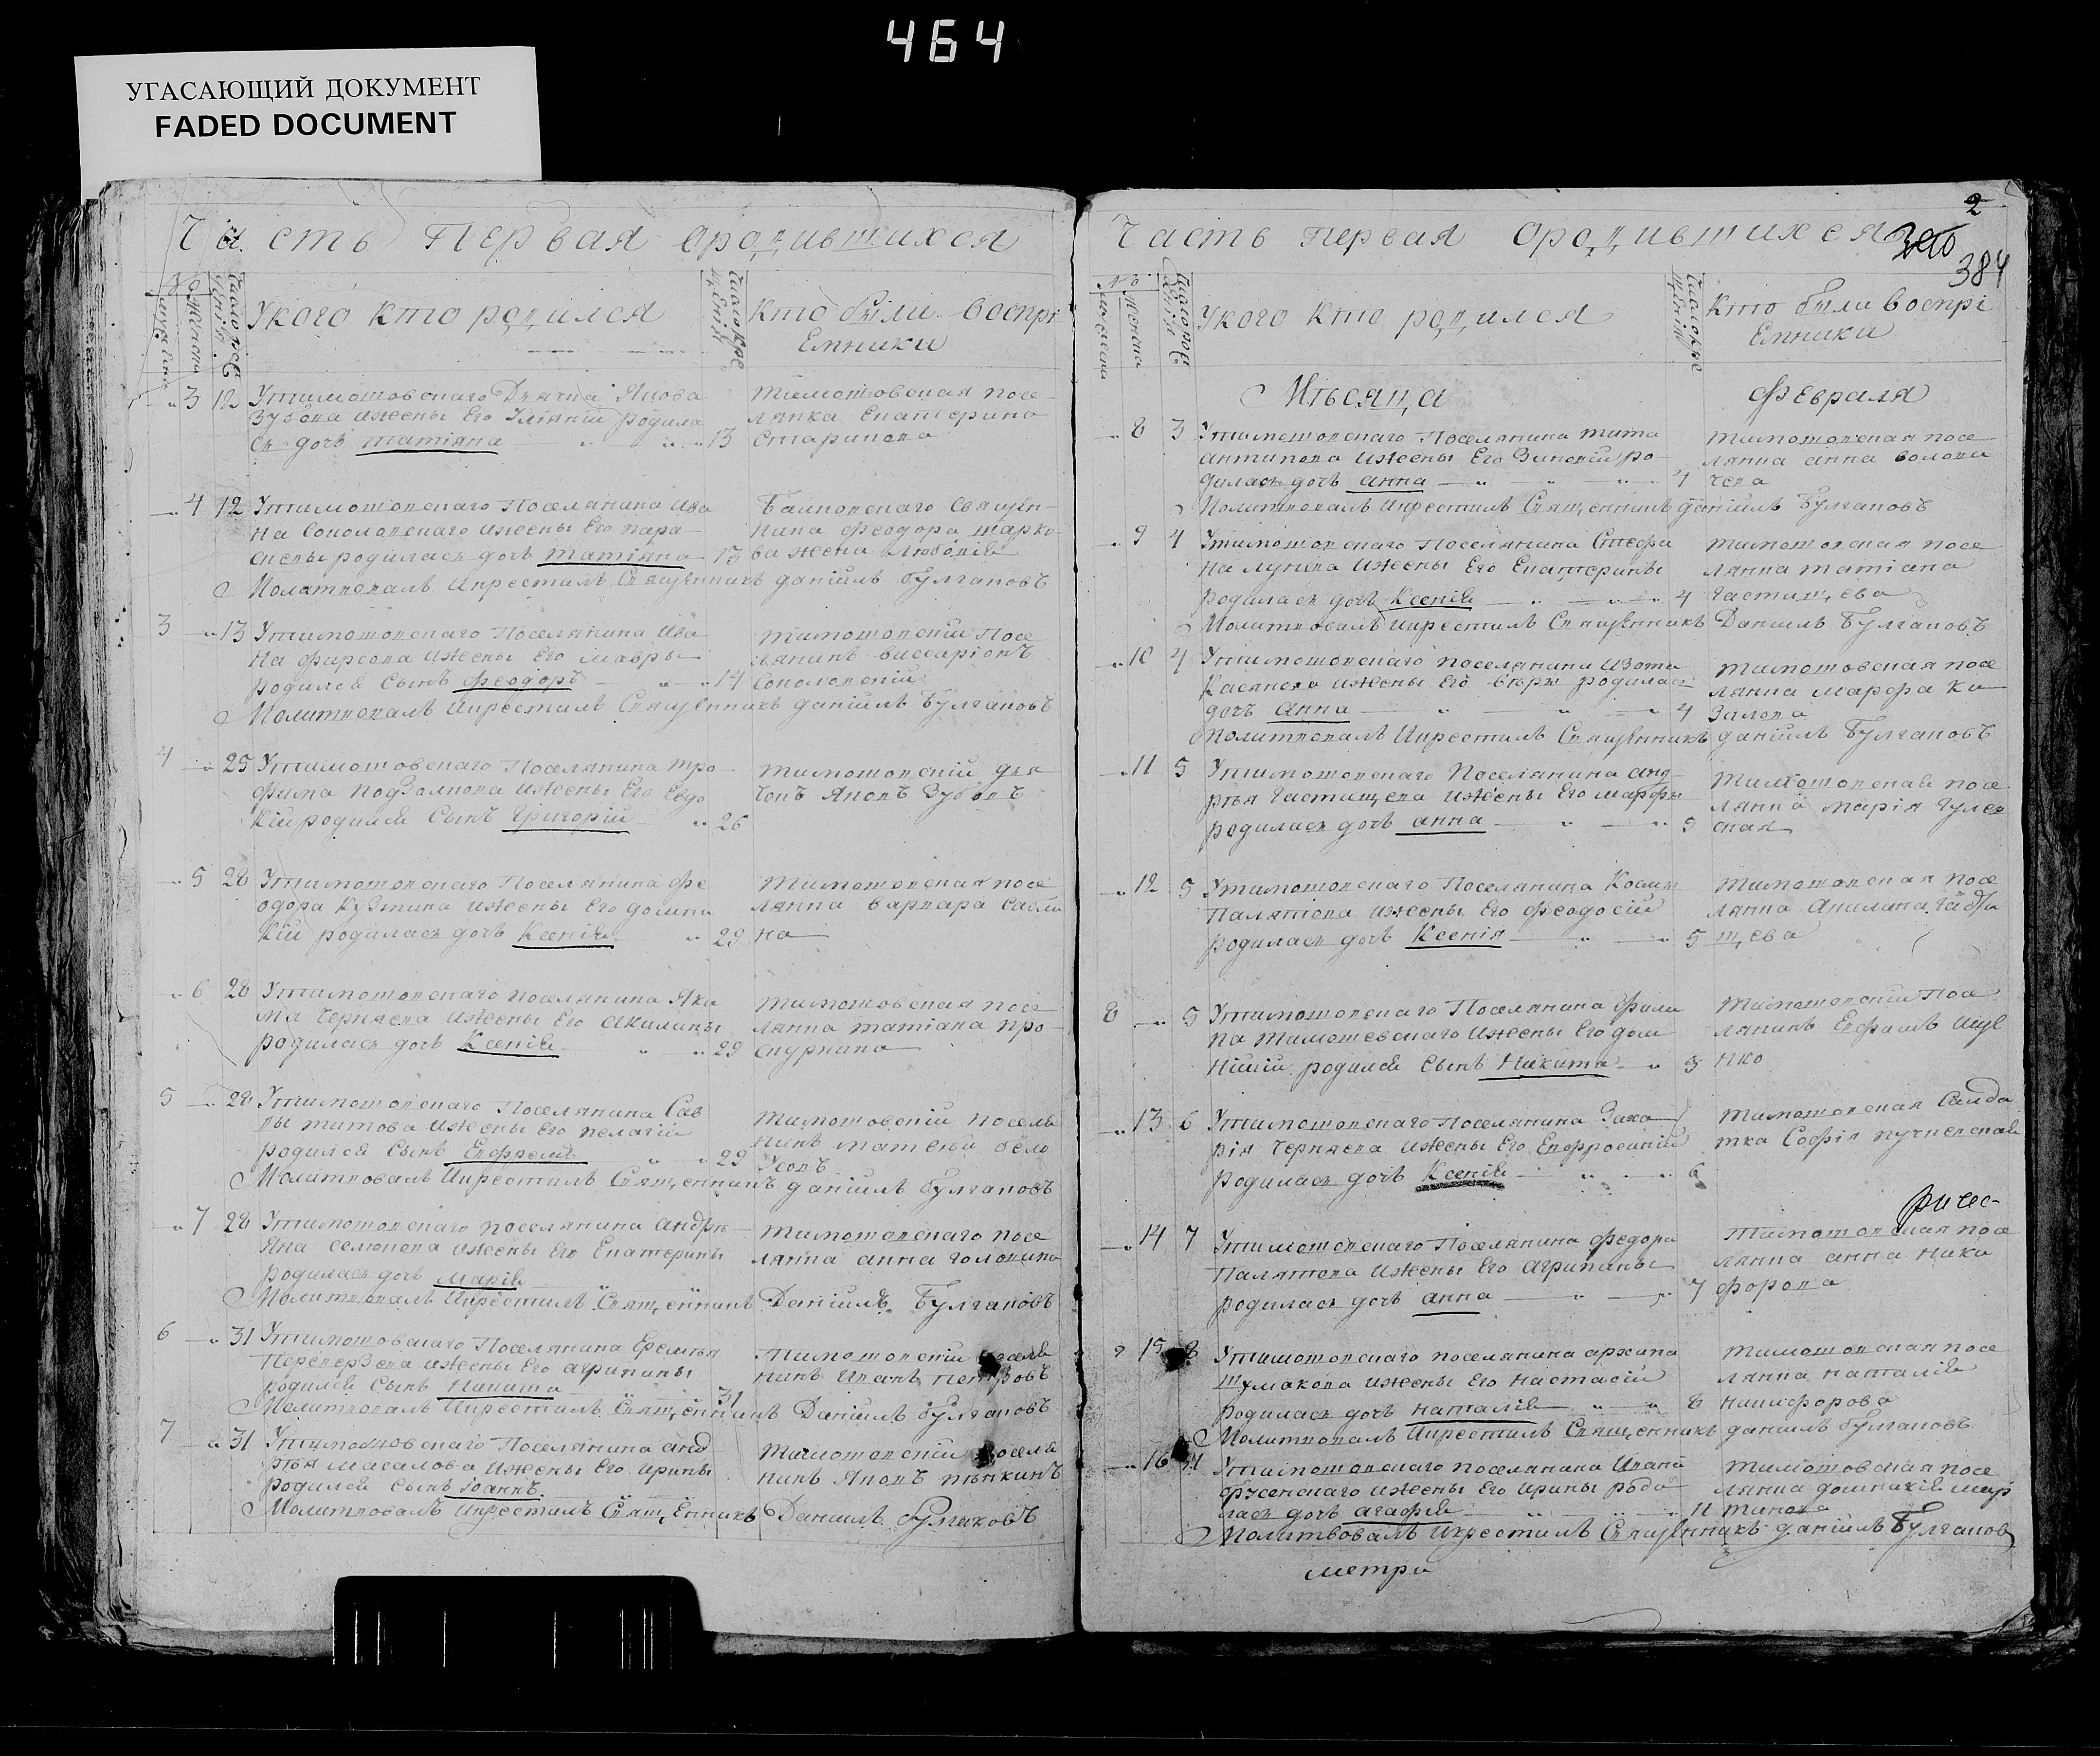 464
УГАСАЮЩИЙ ДОКУМЕНТ
FADED DOCUMENT
Часть Первая ородившихся
№
Укого кто родился
Кто были воспрі
Емники
3 12 Утимошовскаго Дьячка Якова
Зубова ижены Его Іуліяніи родила
ся дочь Татіяна 13
Тимошовская посе
лянка Екатерина
Старикова
4 12 Утимошовскаго Поселянина Ива
на Соколовскаго ижены Его пара
скевы родилась дочь Татіяна 13
Священ
ника Феодора
ва жена Любовія
Молитвовалъ Икрестилъ Священникъ Даніилъ Булгаковъ
3 13 Утимошовскаго Поселянина Ива
на Фирсова ижены Его Мавры
родился Сынъ Феодоръ 14
Тимошовскій Посе
лянинъ Виссаріонъ
Соколовскій
Молитвовалъ Икрестилъ Священникъ Даніилъ Булгаковъ
4 25 Утимошовскаго Поселянина Тро
фима ижены Его Евдо
кіи родился Сынъ Григорій 26
Тимошовскій дья
чокъ Яковъ Зубовъ
5 28 Утимошовскаго Поселянина Фе
одора Кузмина ижены Его Домни
кіи родилась дочь Ксенія 29
Тимошовская посе
лянка Варвара
на
6 28 Утимошовскаго поселянина Яки
ма Черняева ижены Его Акилины
родилась дочь Ксенія 29
Тимошовская посе
лянка Татіана Про
скурнина
5 28 Утимошовскаго Поселянина Сав
вы Титова ижены Его Пелагіи
родился Сынъ Ефремъ 29
Тимошовскій Поселя
нинъ Матвей Бело
усовъ
Молитвовалъ Икрестилъ Священникъ Даніилъ Булгаковъ
7 28 Утимошовскаго поселянина Андрі
яна Селюкова ижены Его Екатерины
родилась дочь Марія
Тимошовскаго посе
лянка Анна Головина
Молитвовалъ Икрестилъ Священникъ Даніилъ Булгаковъ
6 31 Утимошовскаго Поселянина Еремѣя
Переверзева ижены Его Агрипины
родился Сынъ Никита 31
Тимошовскій поселя
нинъ Иванъ Петровъ
Молитвовалъ Икрестилъ Священникъ Даніилъ Булгаковъ
7 31 Утимошовскаго Поселянина Анд
рѣя Масалова ижены Его Ирины
родился Сынъ Іоаннъ
Тимошовскій поселя
нинъ Яковъ
Молитвовалъ Икрестилъ Священникъ Даніилъ Булгаковъ
2
384
Часть первая ородившихся
№
Укого Кто родился
Кто были воспрі
Емники
Мѣсяца Февраля
8 3 Утимошовскаго Поселянина Тита
Антипова ижены Его Зиновіи ро
дилась дочь Анна
Тимошовская посе
лянка Анна
чева
Молитвовалъ Икрестилъ Священникъ Даніилъ Булгаковъ
9 4 Утимошовскаго Поселянина Стефа
на Лунева Ижены Его Екатерины
родилась дочь Ксенія 4
Тимошовская посе
лянка Татіана
Частищева
Молитвовалъ Икрестилъ Священникъ Даніилъ Булгаковъ
10 4 Утимошовскаго поселянина Изота
Касянова ижены Его Веры родилась
дочь Анна 4
Тимошовская посе
лянка Марфа Ко
залова
Молитвовалъ Икрестилъ Священникъ Даніилъ Булгаковъ
11 5 Утимошовскаго Поселянина Анд
рѣя Частищева ижены Его Марфы
родилась дочь Анна 5
Тимошовская посе
лянка Марія
ская
12 5 Утимошовскаго Поселянина Космы
Палятова ижены Его Феодосіи
родилась дочь Ксенія 5
Тимошовская посе
лянка Акилина
щева
8 5 Утимошовскаго Поселянина Фили
па Тимошевскаго ижены Его Дом
никіи родился Сынъ Никита 5
Тимошовскій Посе
лянинъ Ефимъ
нко
13 6 Утимошовскаго Поселянина Заха
рія Черняева ижены Его Евфросиніи
родилась дочь Ксенія 6
Тимошовская Салда
тка Софія
14 7 Утимошовскаго Поселянина Федора
Палятова ижены Его Агрипины
родилась дочь Анна 7
Тимошовская посе
лянка Анна Ники
форова
15 8 Утимошовскаго поселянина Архипа
Шумакова ижены Его Настасіи
родилась дочь Наталія 8
Тимошовская посе
лянка Наталія
Никифорова
Молитвовалъ Икрестилъ Священникъ Даніилъ Булгаковъ
16 11 Утимошовскаго поселянина Ивана
ижены Его Ирины роди
лась дочь Агафія 11
Тимошовская посе
лянка Домникія Мар
тинова
Молитвовалъ Икрестилъ Священникъ Даніилъ Булгаковъ
метри